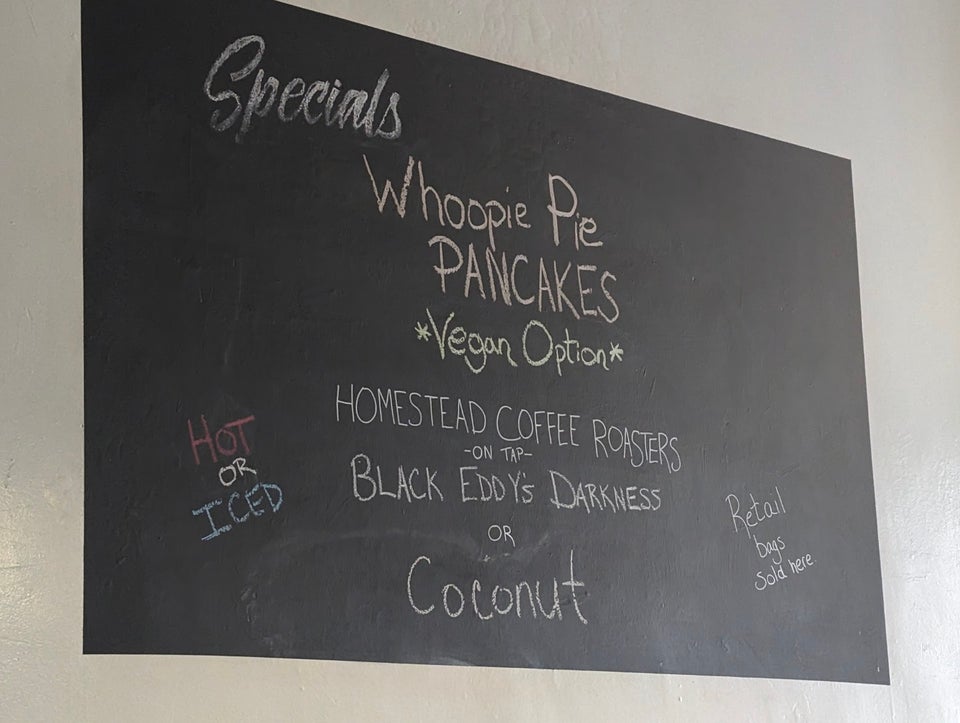 Specials
Whoopie Pie
PANCAKES
*Vegan Option*
HOMESTEAD COFFEE ROASTERS
-ON TAP-
BLACK EDDY'S DARKNESS
OR
Coconut
HOT
OR
ICED
Retail
bags
Sold here